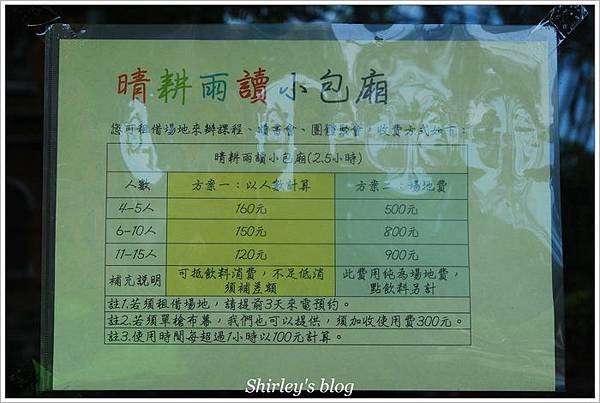 晴耕雨讀小包廂
您可租借場地來辦課程、讀書會、團體聚會，收費方式如下：
晴耕雨讀小包廂(2.5小時)
人數 方案一：以人數計算 方案二：場地費
4-5人 160元 500元
6-10人 150元 800元
11-15人 120元 900元
補充説明 可抵飲料消費，不足低消須補差額 此費用純為場地費，點飲料另計
註1.若須租借場地，請提前3天來電預約。
註2.若須單槍布幕，我們也可以提供，須加收使用費300元。
註3.使用時間每超過1小時以100元計算。
Shirley's blog